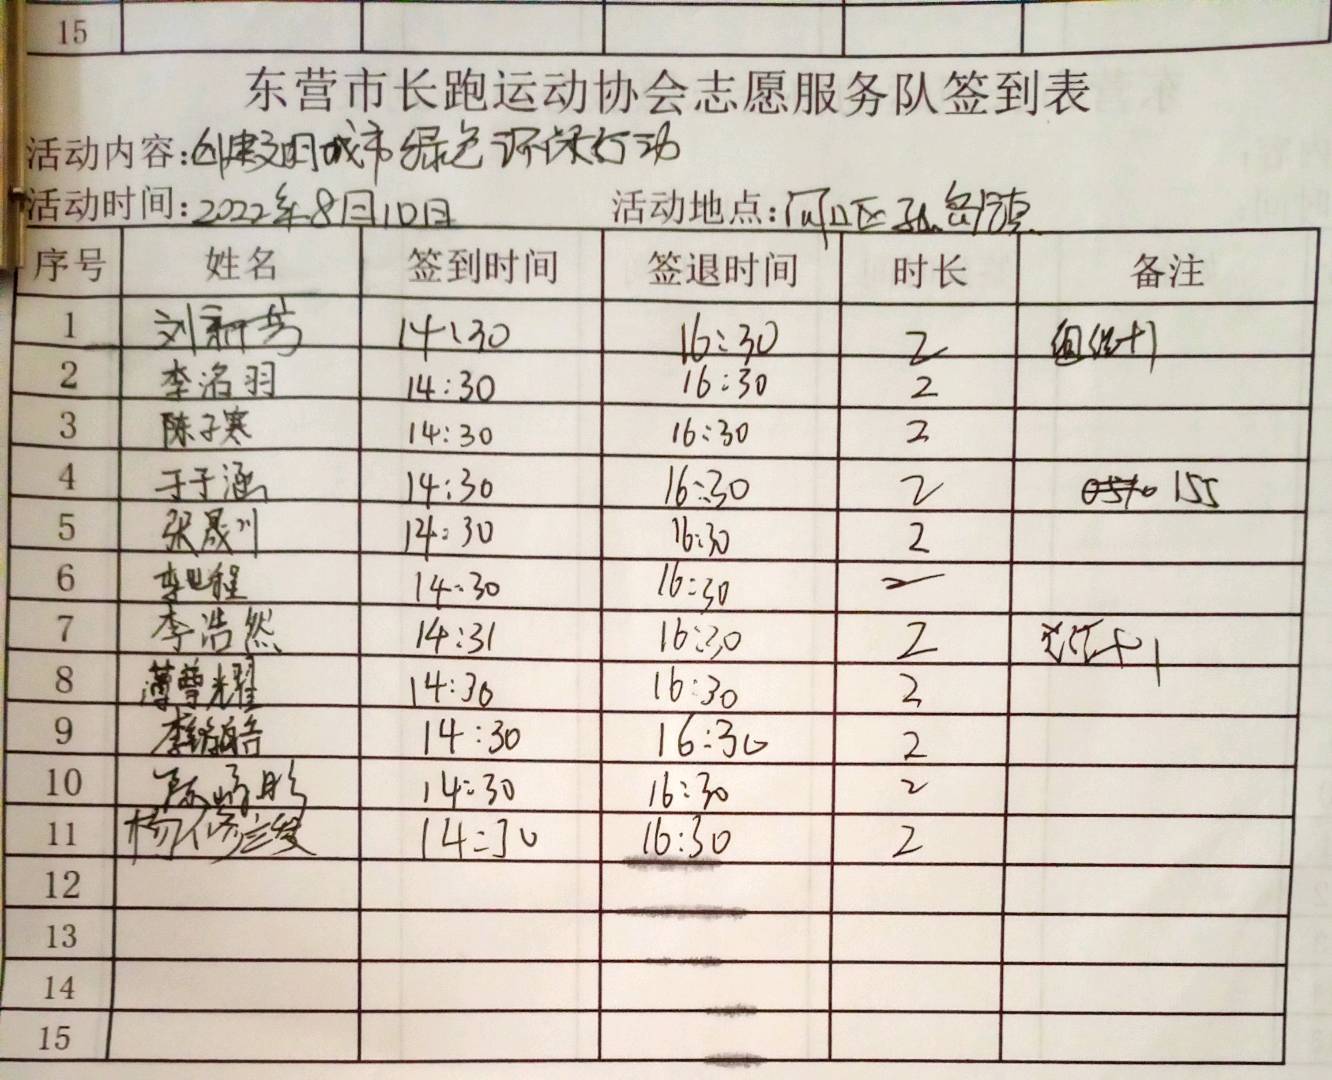 15
东营市长跑运动协会志愿服务队签到表
活动内容:创建文明城市绿色环保行动
活动时间:2022年8月10日 活动地点:河口区孤岛镇
序号 姓名 签到时间 签退时间 时长 备注
1 刘新芳 14:30 16:30 2 组织+1
2 李洺羽 14:30 16:30 2
3 陈子寒 14:30 16:30 2
4 于子涵 14:30 16:30 2 155
5 张晟川 14:30 16:30 2
6 李世程 14:30 16:30 2
7 李浩然 14:31 16:30 2 +1
8 薄曾耀 14:30 16:30 2
9 李 皓 14:30 16:30 2
10 14:30 16:30 2
11 杨修 14:30 16:30 2
12
13
14
15